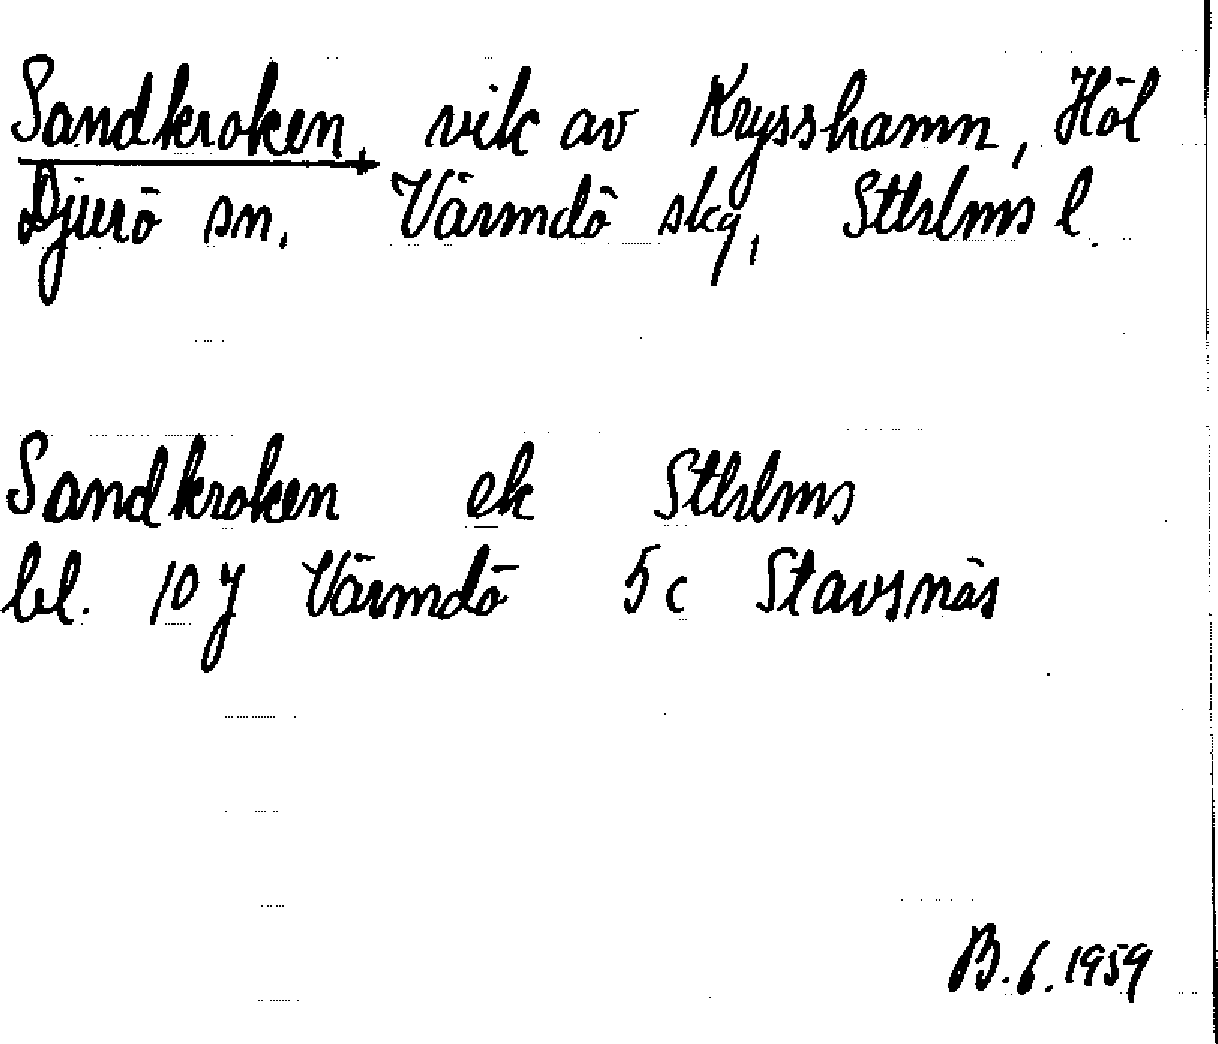 Sandkroken, vik av Krysshamn, Höl
Djurö sn. Värmdö skg, Sthlms l.
Sandkroken ek Sthlms
bl. 10 y Värmdö 5 c Stavsnäs
B. 6. 1959